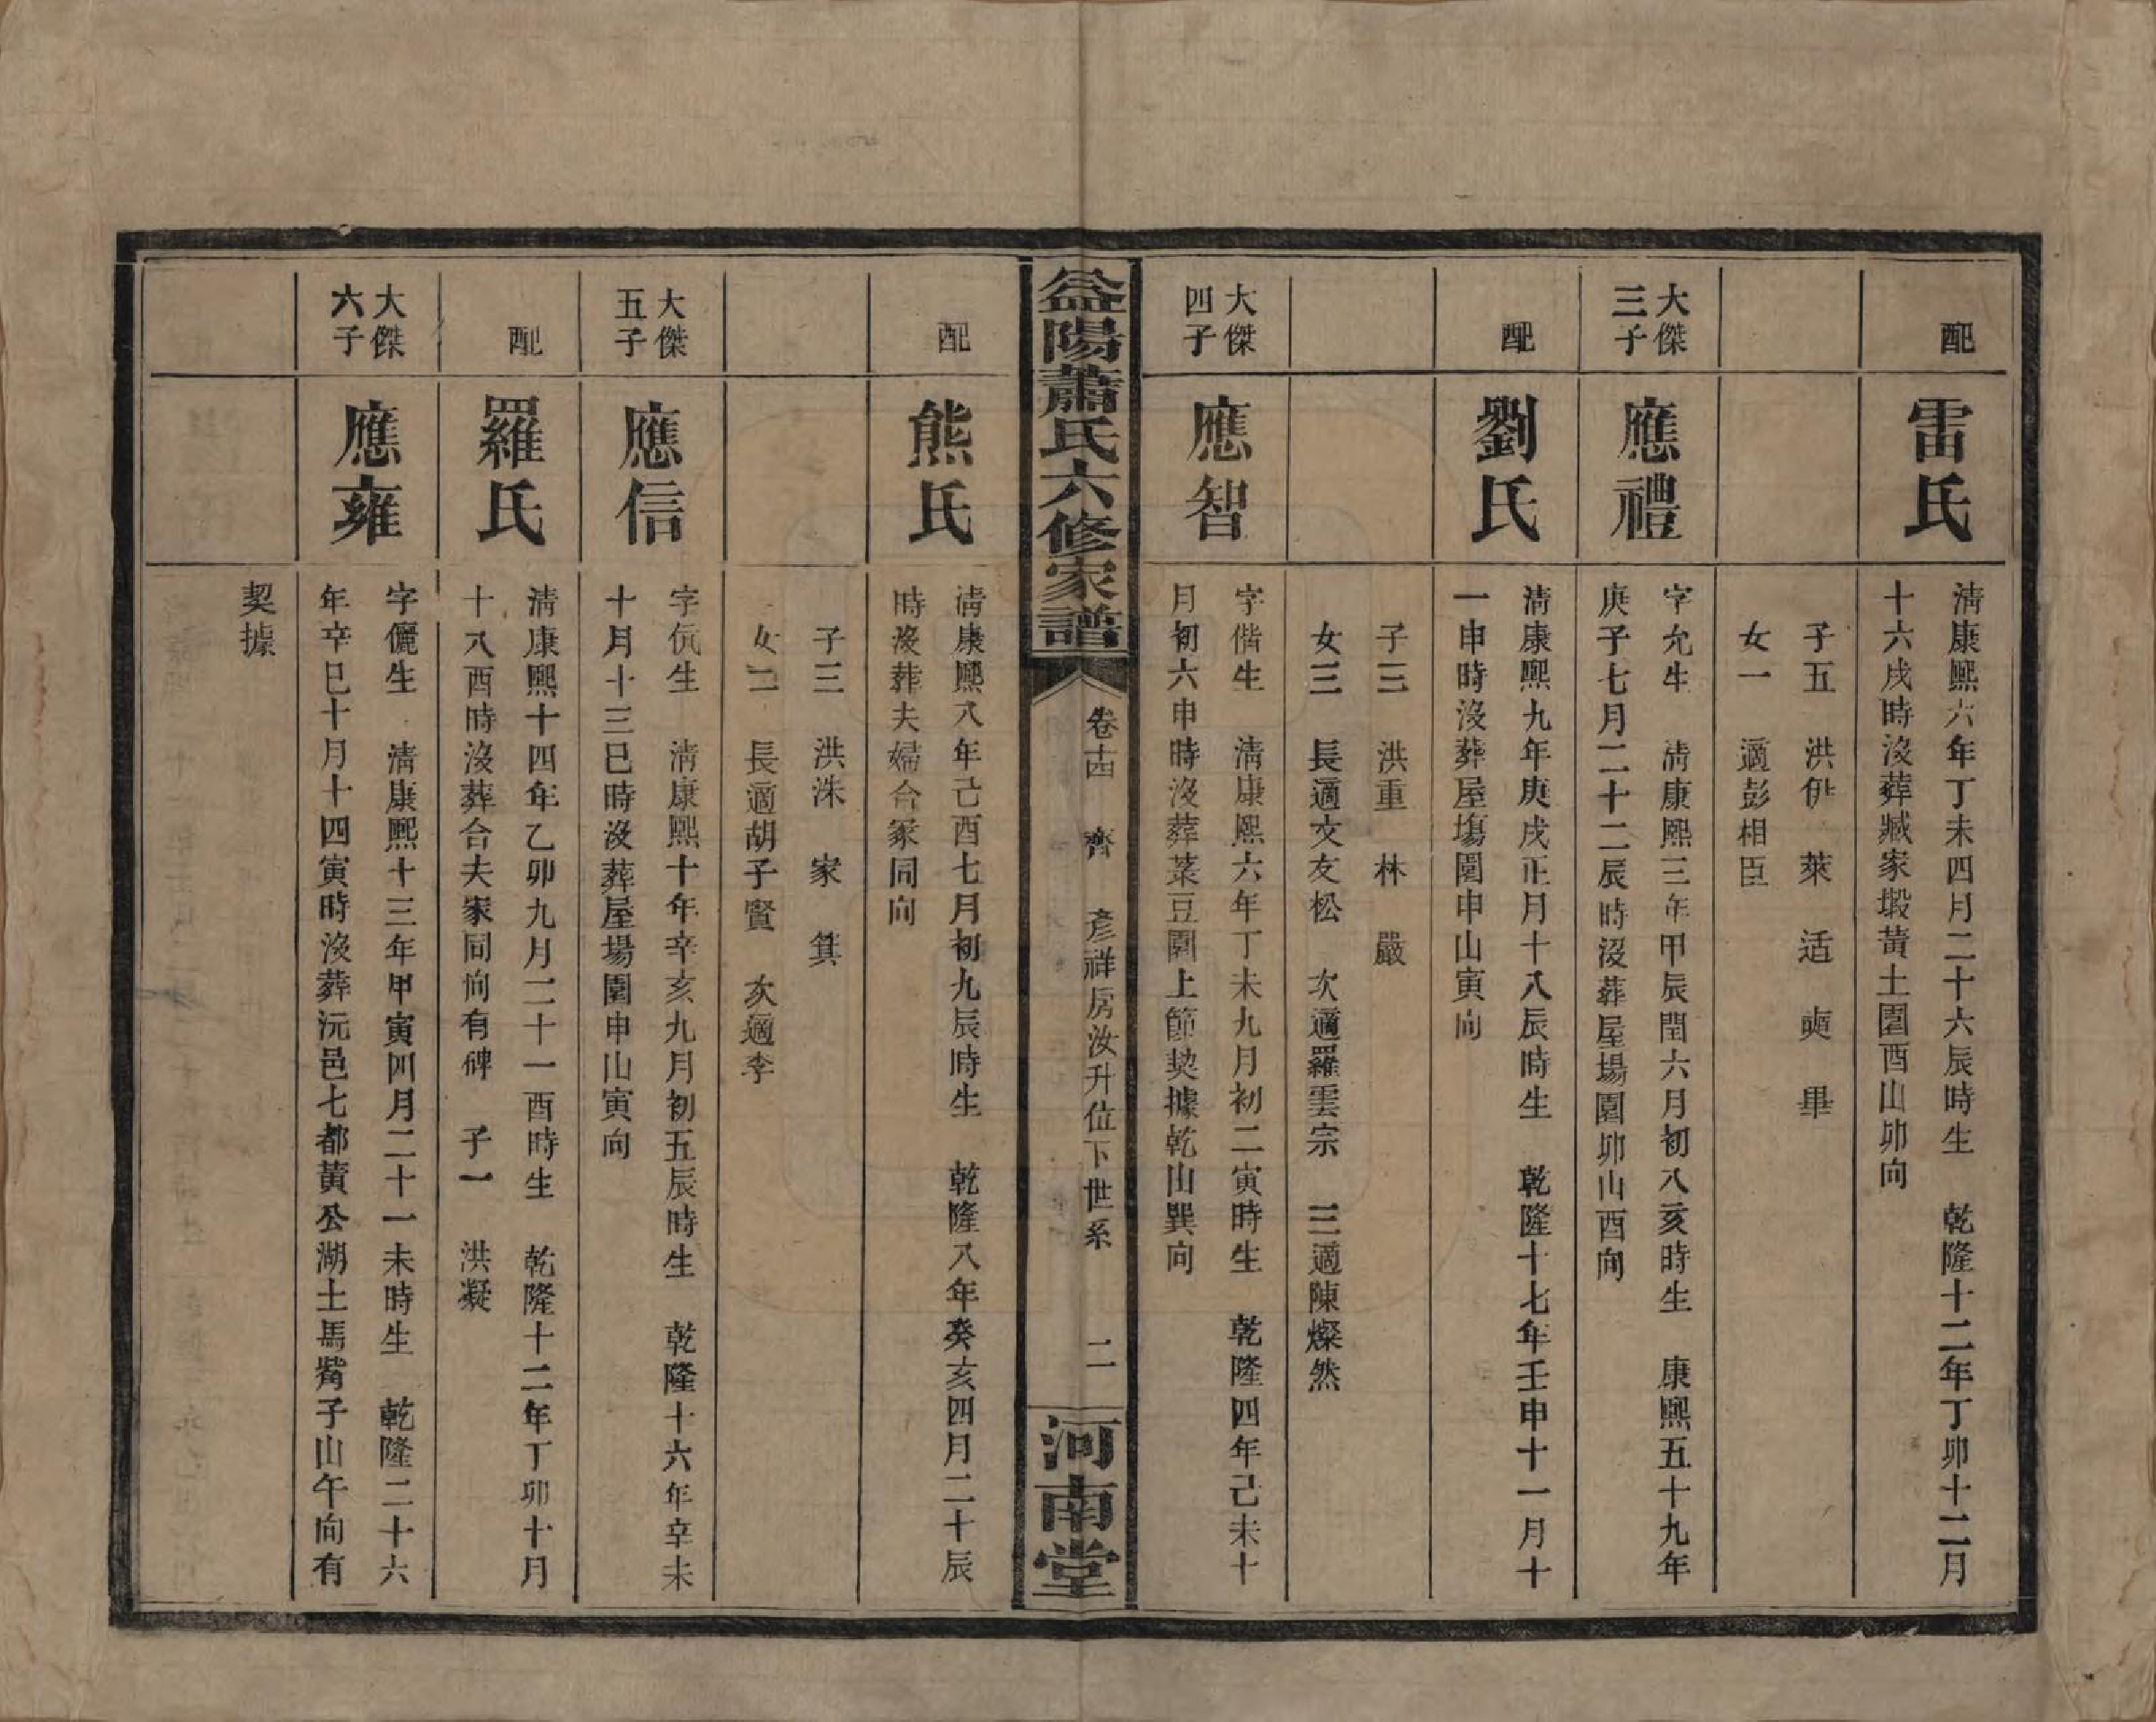 配
雷氏
淸康熙六年丁未四月二十六辰時生　乾隆十二年丁卯十二月
十六戌時沒葬臧家塅黃土園酉山卯向
子五　洪伊　萊　适　奭　畢
女一　適彭相臣
大傑
三子
應禮
字允生　淸康熙三年甲辰閏六月初八亥時生　康熙五十九年
庚子七月二十二辰時沒葬屋場園卯山酉向
配
劉氏
淸康熙九年庚戌正月十八辰時生　乾隆十七年壬申十一月十
一申時沒葬屋塲園申山寅向
子三　洪重　林　嚴
女三　長適文友松　次適羅雲宗　三適陳燦然
大傑
四子
應智
字偕生　淸康熙六年丁未九月初二寅時生　乾隆四年己未十
月初六申時沒葬菜豆園上節契據乾山巽向
益陽蕭氏六修家譜
卷十四　齊　彥祥房汝升位下世系　二
河南堂
配
熊氏
淸康熙八年己酉七月初九辰時生　乾隆八年癸亥四月二十辰
時沒葬夫婦合冢同向
子三　洪洙　家　箕
女二　長適胡子賢　次適李
大傑
五子
應信
字伉生　淸康熙十年辛亥九月初五辰時生　乾隆十六年辛未
十月十三巳時沒葬屋場園申山寅向
配
羅氏
淸康熙十四年乙卯九月二十一酉時生　乾隆十二年丁卯十月
十八酉時沒葬合夫冢同向有碑　子一　洪凝
大傑
六子
應雍
字儷生　淸康熙十三年甲寅四月二十一未時生　乾隆二十六
年辛巳十月十四寅時沒葬沅邑七都黃公湖土馬觜子山午向有
契據